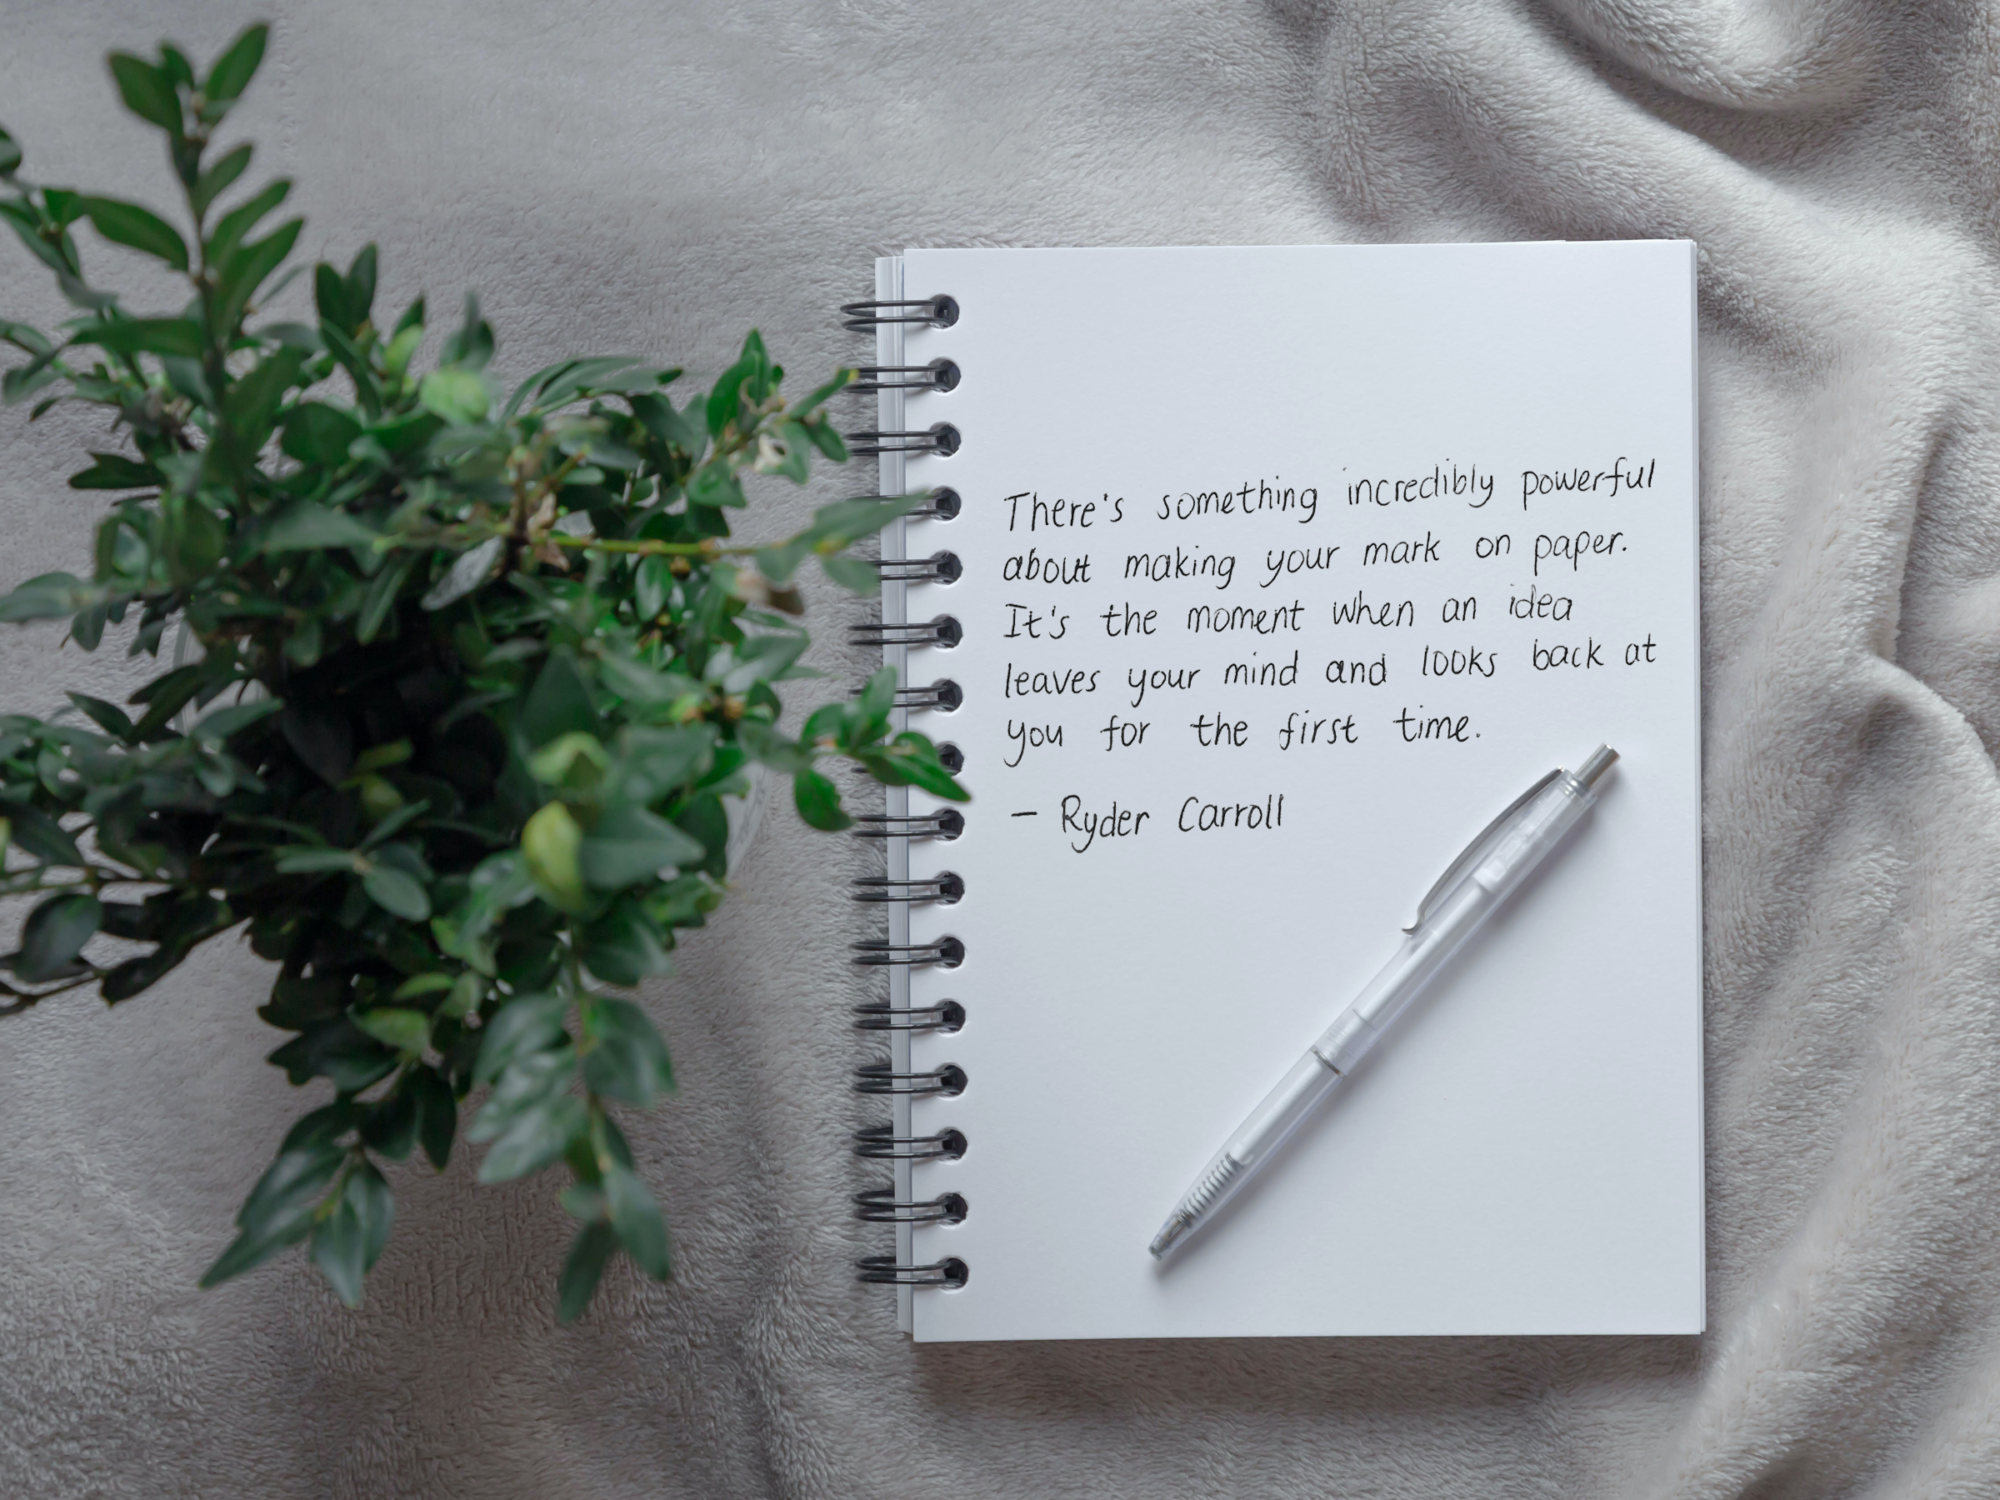 There's something incredibly powerful
about making your mark on paper.
It's the moment when an idea
leaves your mind and looks back at
you for the first time.
– Ryder Carroll